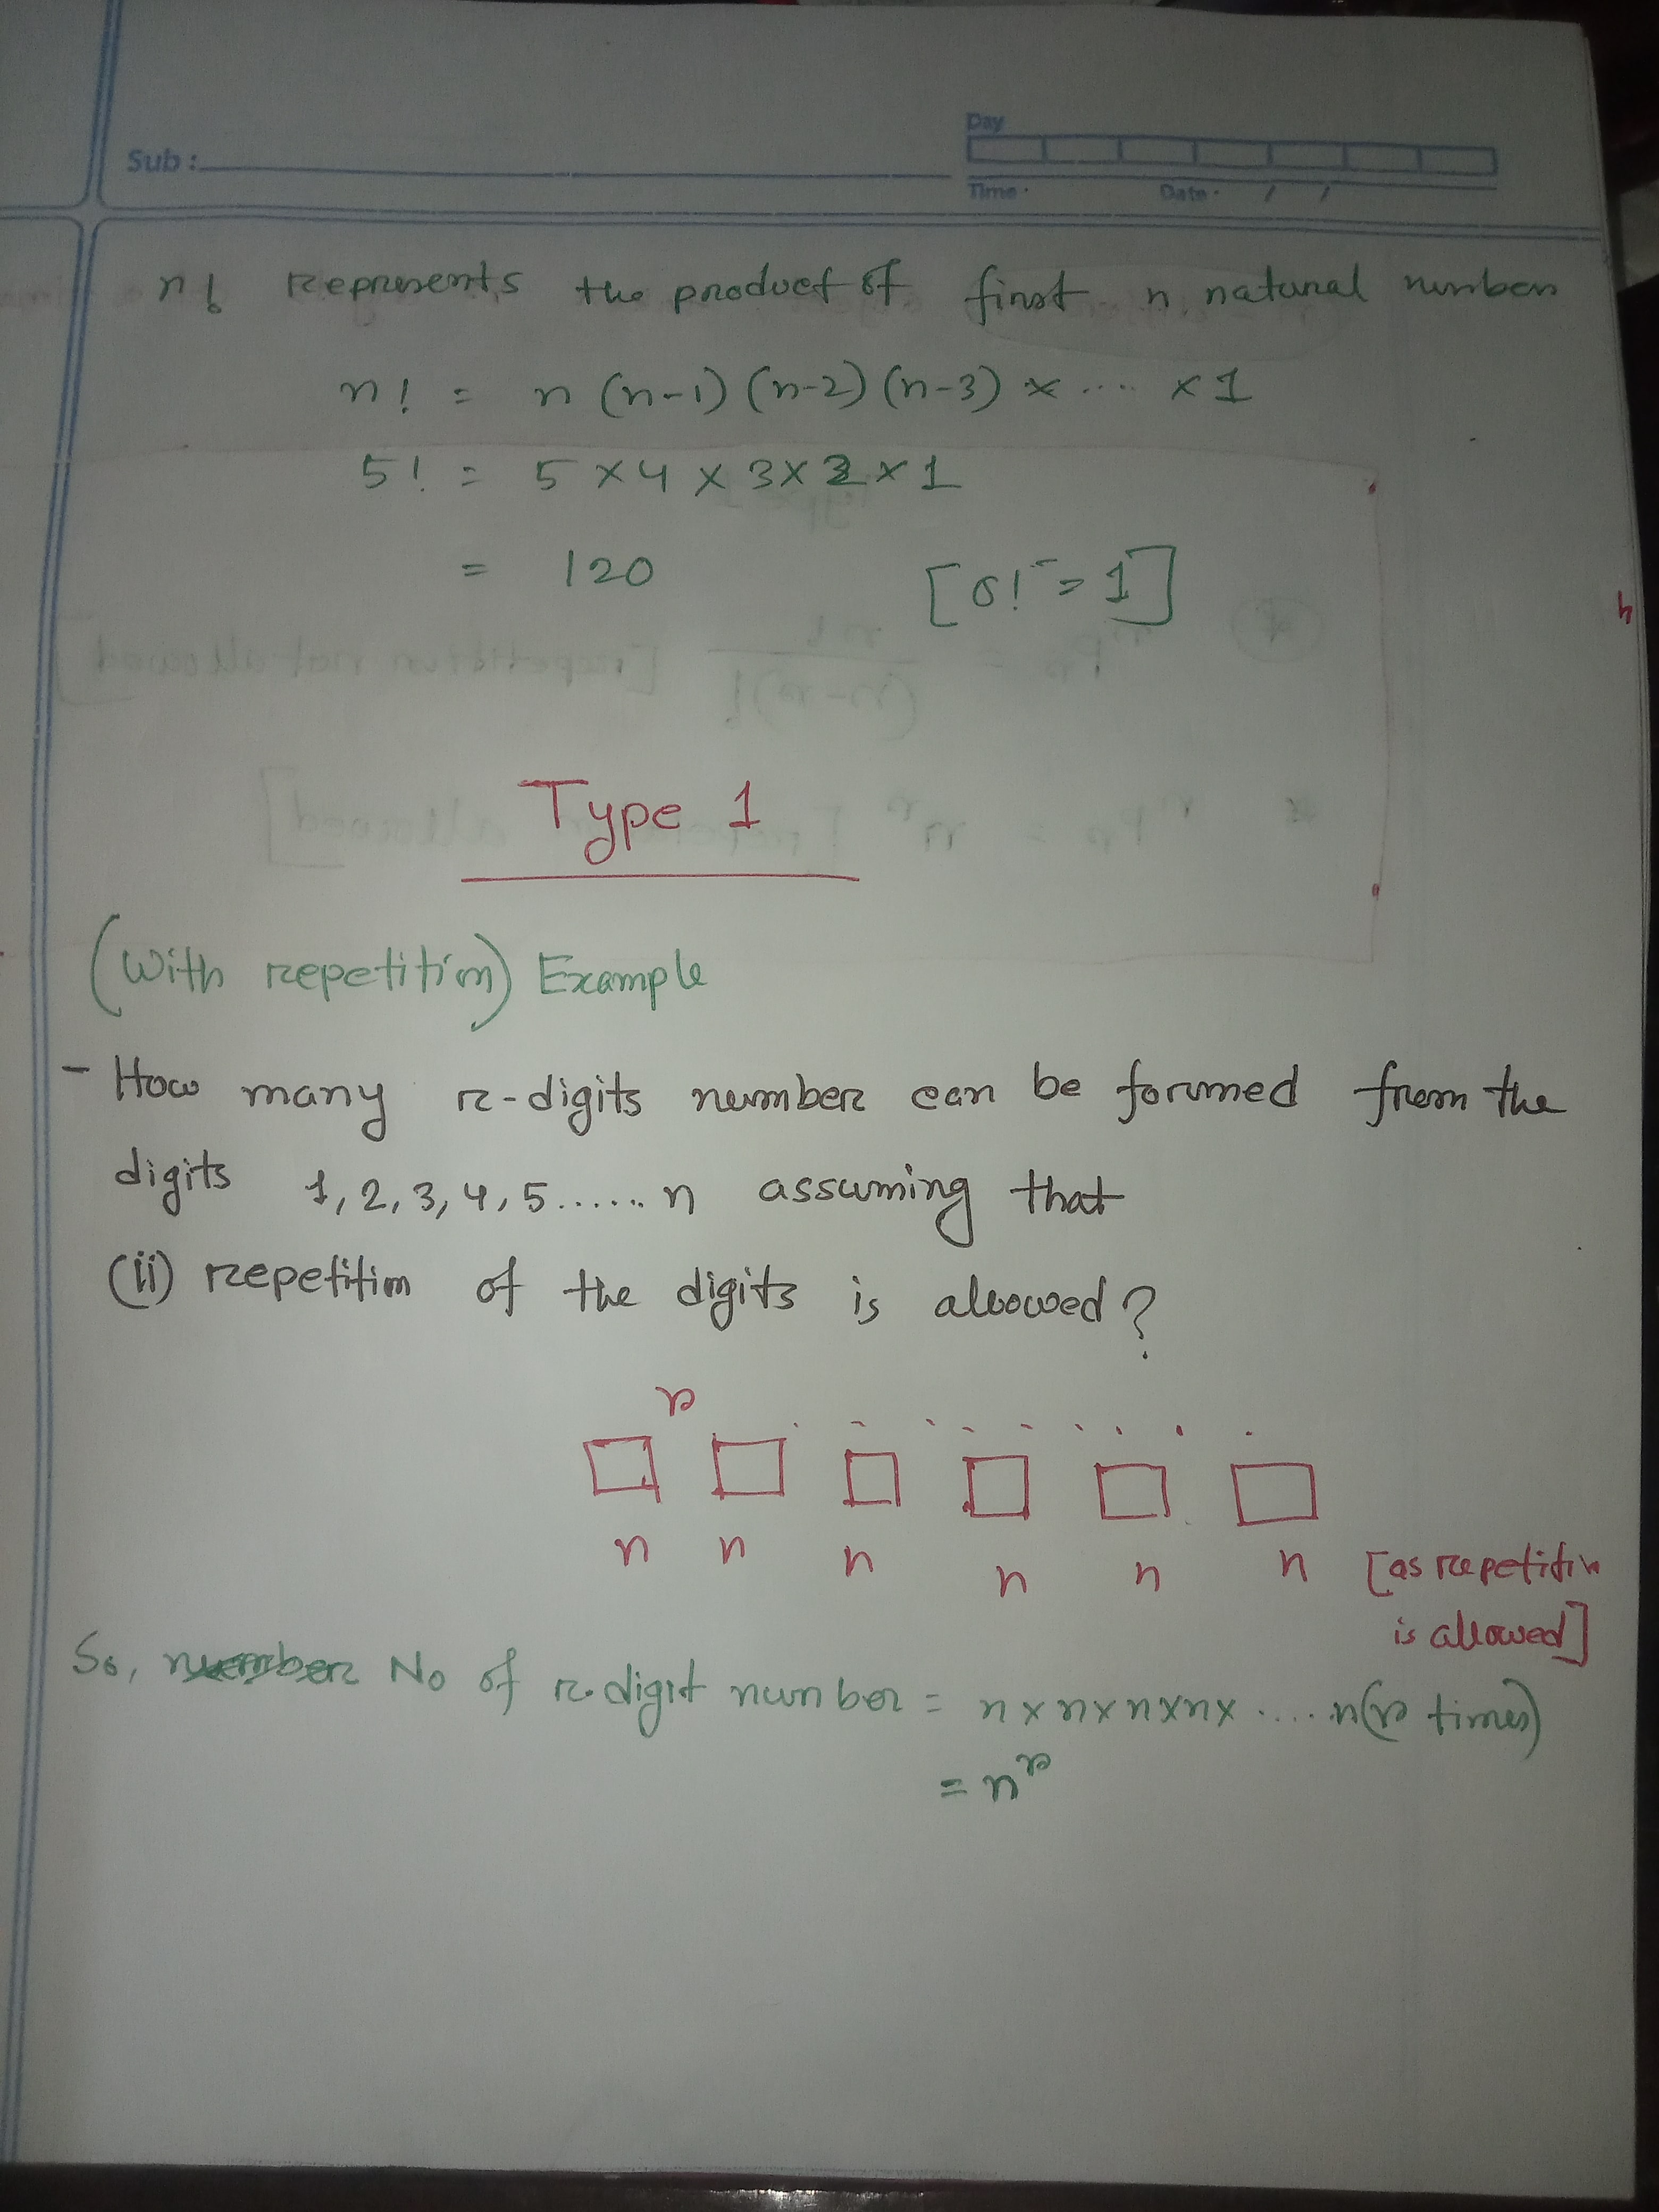 Day
Sub :
Time · Date · / /
n! represents the product of first n natural number
n! = n (n-1) (n-2) (n-3) × .... × 1
5! = 5 × 4 × 3 × 2 × 1
= 120 [0! = 1]
Type 1
(With repetition) Example
- How many r-digits number can be formed from the
digits 1, 2, 3, 4, 5 ...... n assuming that
(ii) repetition of the digits is allowed?
r
n n n n n n [as repetition
is allowed]
So, number No of r-digit number = n × n × n × n × .... n (r times)
= n^r